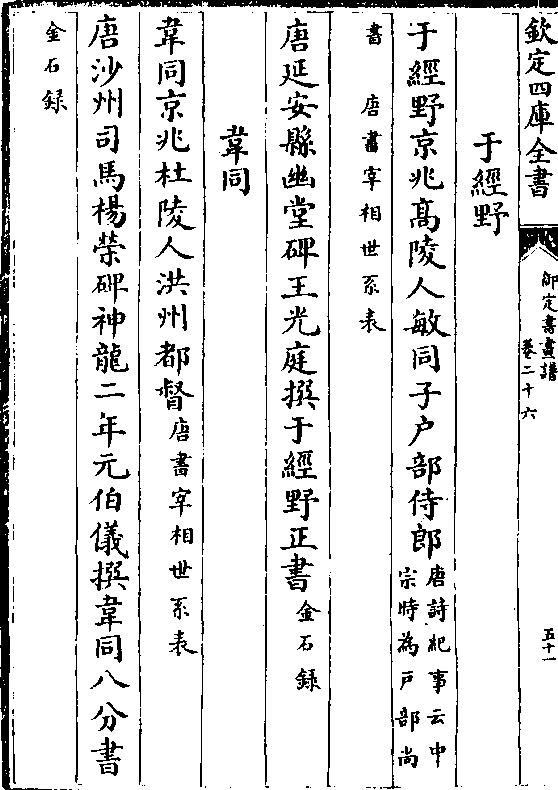 欽定四庫全書
御定書畫譜
卷二十六
五十一
于經野
于經野京兆髙陵人敏同子户部侍郎唐詩紀事云中
宗時為户部尚
書 唐書宰相世系表
唐延安縣幽堂碑王光庭撰于經野正書金石録
韋同
韋同京兆杜陵人洪州都督唐書宰相世系表
唐沙州司馬楊榮碑神龍二年元伯儀撰韋同八分書
金石録